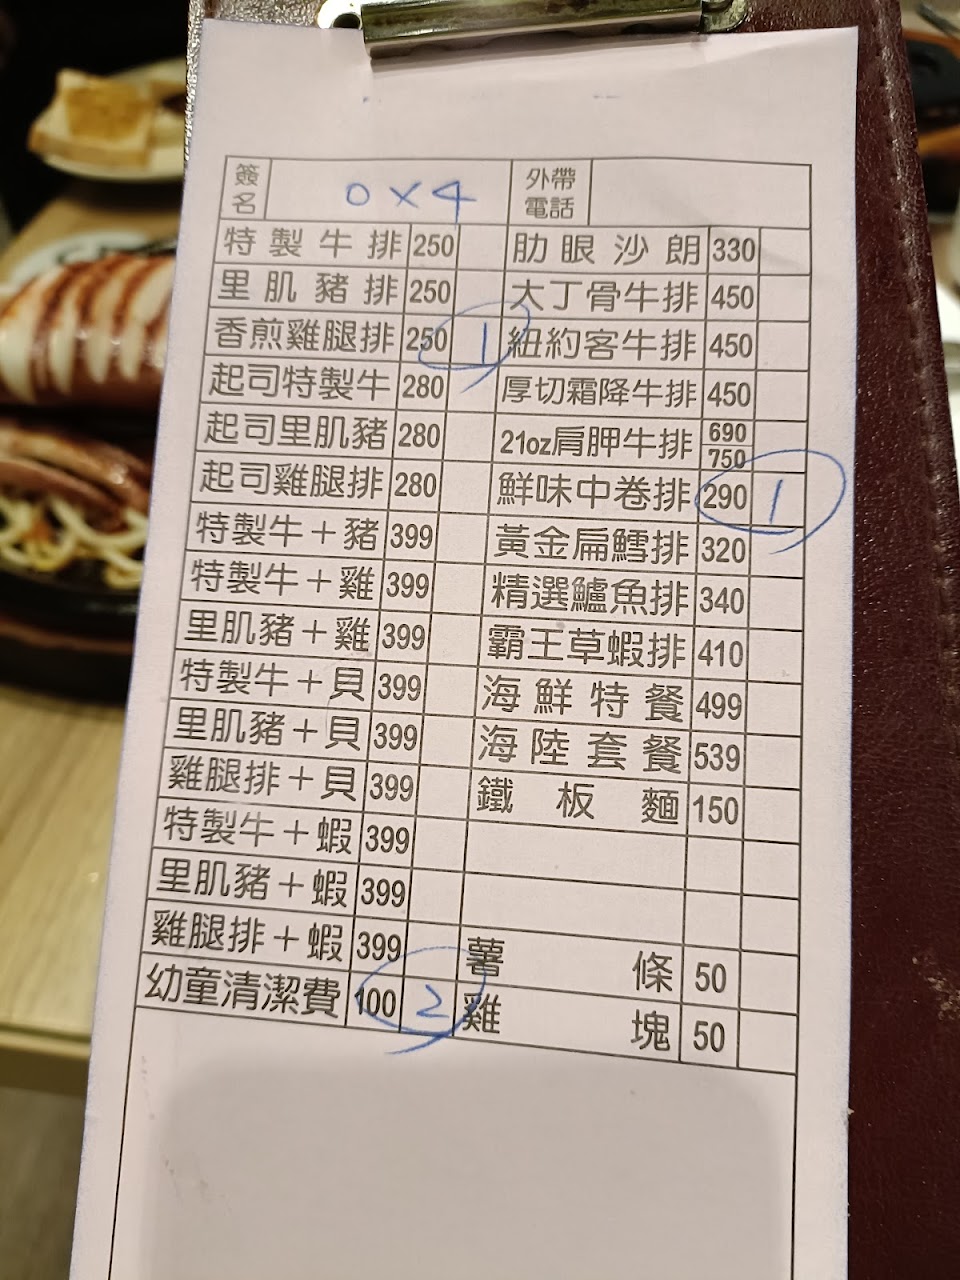 簽名 0×4 外帶電話
特製牛排 250 肋眼沙朗 330
里肌豬排 250 大丁骨牛排 450
香煎雞腿排 250 1 紐約客牛排 450
起司特製牛 280 厚切霜降牛排 450
起司里肌豬 280 21oz肩胛牛排 690 750
起司雞腿排 280 鮮味中卷排 290 1
特製牛+豬 399 黃金扁鱈排 320
特製牛+雞 399 精選鱸魚排 340
里肌豬+雞 399 霸王草蝦排 410
特製牛+貝 399 海鮮特餐 499
里肌豬+貝 399 海陸套餐 539
雞腿排+貝 399 鐵板麵 150
特製牛+蝦 399
里肌豬+蝦 399
雞腿排+蝦 399 薯條 50
幼童清潔費 100 2 雞塊 50